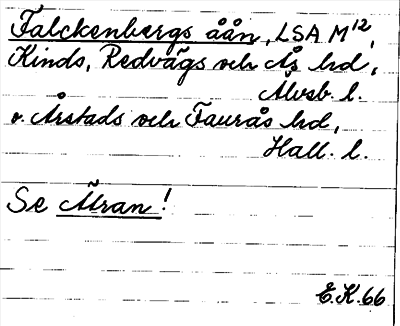 Falckenbergs åån, LSA M¹²,
Kinds, Redvägs och Ås hd,
Älvsb. l.
o. Årstads och Faurås hd,
Hall. l.
Se Ätran!
E.K.66